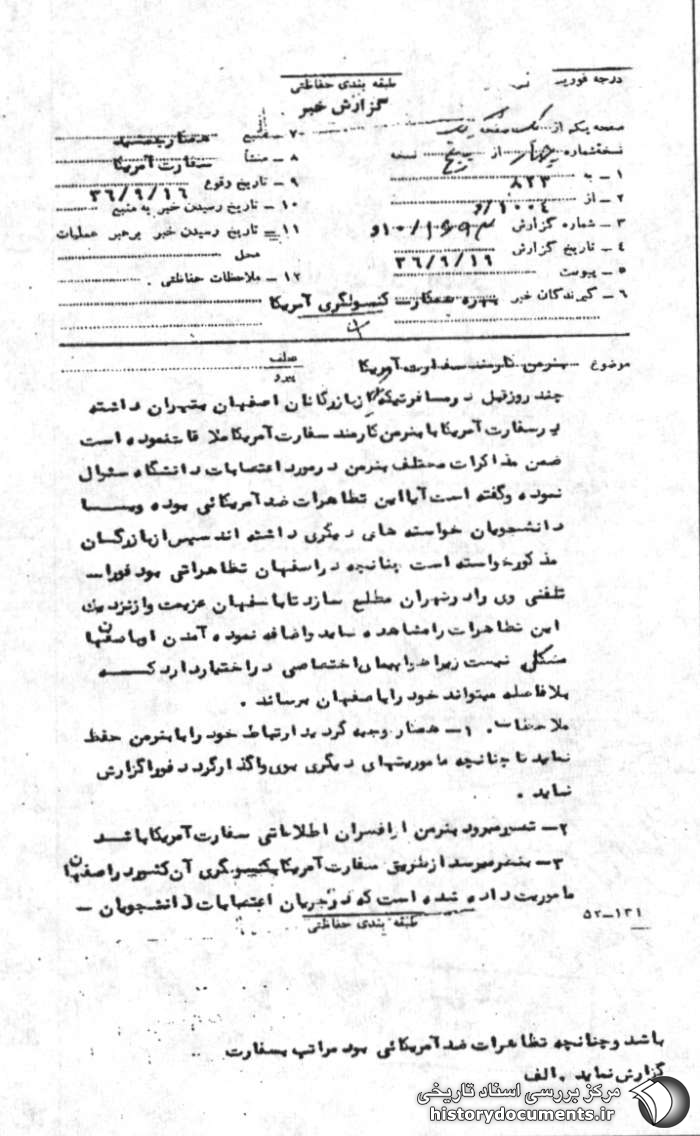 درجه فوریت
طبقه بندی حفاظتی
گزارش خبر
صفحه یکم از یک صفحه
نسخه شماره چهار از پنج نسخه
۱ – به ۸۲۳
۲ – از ۱۰۰۴/و
۳ – شماره گزارش
۴ – تاریخ گزارش ۳۶/۹/۱۹
۵ – پیوست
۶ – گیرندگان خبر بهره همکار – کنسولگری آمریکا
۷ – منبع همکار جمشید
۸ – منشأ سفارت آمریکا
۹ – تاریخ وقوع ۳۶/۹/۱۶
۱۰ – تاریخ رسیدن خبر به منبع
۱۱ – تاریخ رسیدن خبر برهبر عملیات
محل
۱۲ – ملاحظات حفاظتی
موضوع کارمند سفارت آمریکا
عطف
پیرو
چند روز قبل در مسافرتیکه از بازرگانان اصفهان بتهران داشته
در سفارت آمریکا با بنرمن کارمند سفارت آمریکا ملاقات نموده است
ضمن مذاکرات مختلف بنرمن در مورد اعتصابات دانشگاه سئوال
نموده و گفته است آیا این تظاهرات ضد آمریکائی بوده و یا
دانشجویان خواسته های دیگری داشته اند سپس از بازرگان
مذکور خواسته است چنانچه در اصفهان تظاهراتی بود فورا –
تلفنی وی را در تهران مطلع سازد تا باصفهان عزیمت و از نزدیک
این تظاهرات را مشاهده نماید و اضافه نموده آمدن او باصفهان
مشکلی نیست زیرا هواپیمای اختصاصی در اختیار دارد که
بلافاصله میتواند خود را باصفهان برساند .
ملاحظات . ۱ – همکار توجیه گردید ارتباط خود را با بنرمن حفظ
نماید تا چنانچه ماموریتهای دیگری بوی واگذار کرد فورا گزارش
نماید .
۲ – تصور میرود بنرمن از افسران اطلاعاتی سفارت آمریکا باشد
۳ – بنظر میرسد از طریق سفارت آمریکا بکنسولگری آن کشور در اصفهان
ماموریت داده شده است که در جریان اعتصابات دانشجویان –
۵۲–۱۳۱
طبقه بندی حفاظتی
باشد و چنانچه تظاهرات ضد آمریکائی بود مراتب بسفارت
گزارش نماید . الف
مرکز بررسی اسناد تاریخی
historydocuments.ir